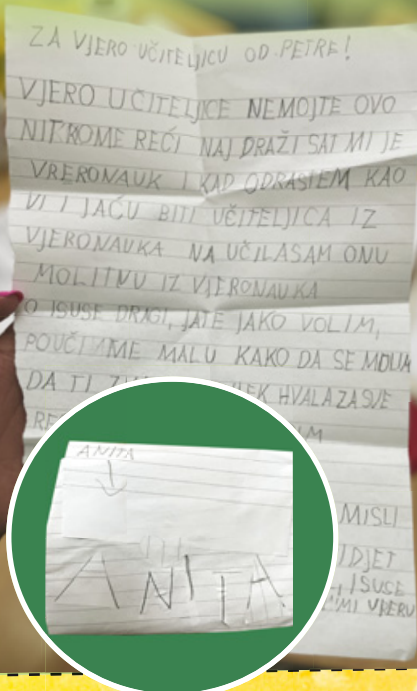 ZA VJERO UČITELJICU OD PETRE!
VJERO UČITELJICE NEMOJTE OVO
NITKOME REĆI NAJ DRAŽI SAT MI JE
VRERONAUK I KAD ODRASTEM KAO
VI I JAĆU BITI UČITELJICA IZ
VJERONAUKA NA UČILASAM ONU
MOLITVU IZ VJERONAUKA
O ISUSE DRAGI, JATE JAKO VOLIM,
POUČI ME MALU KAKO DA SE MOLIM
DA TI HVALA ZA SVE
MISLI
ISUSE
ANITA
ANITA